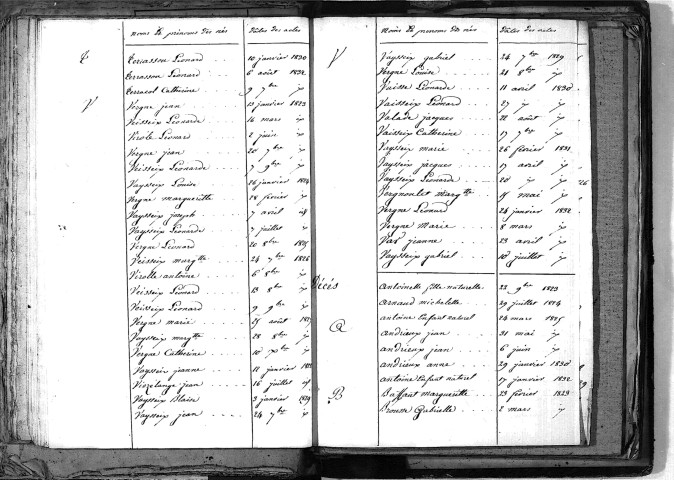 Noms & prenoms des nés Dates des actes
T Terrasson Léonard 10 janvier 1830
Terrasson Léonard 6 août 1832
Terracol Catherine 9 7bre
V Vergne jean 13 janvier 1823
Veisseix Léonarde 16 mars
Virole Léonard 2 juin
Vergne jean 20 7bre
Veisseix Léonarde 7 9bre
Vaysseix Louise janvier 1824
Vergne marguerite 18 février
Vaysseix joseph 7 avril
Vaysseix Léonarde 7 juillet
Vergne Léonard 20 8bre 1825
Veisseix margtte 24 7bre 1826
Virolle antoine 6 8bre
Veisseix Léonard 13 8bre
Veisseix Léonard 9 9bre
Vergne marie 25 août
Vaysseix margtte 28 8bre
Vergne Catherine 10 Xbre
Vaysseix jeanne 11 janvier
jean 16 juillet
Vaysseix Blaise 3 janvier 1829
Vaysseix jean 24 7bre
Noms & prenoms des nés Dates des actes
V Vaysseix gabriel 24 7bre 1829
Vergne Louise 21 8bre
Vaisse Léonarde 11 avril 1830
Vaisseix Léonard 27
Valade jacques 22 août
Vaisseix Catherine 17 7bre
Vaysseix marie 26 février 1831
Vaysseix jacques 17 avril
Vaysseix Léonarde 20
Vergnoulet margtte mai
Vergne Léonard 24 janvier 1832
Vergne Marie 8 mars
Vas jeanne 23 avril
Vaysseix gabriel 10 juillet
Décés
Antoinette fille naturelle 22 9bre 1823
A arnaud michelette 29 juillet 1824
antoine Enfant naturel 24 mars 1825
andrieux jean 31 mai
andrieux jean 6 juin
andrieux anne 29 janvier 1830
antoine Enfant naturel 17 janvier 1832
B Baffaut marguerite 23 février 1823
Brousse Gabrielle 2 mars